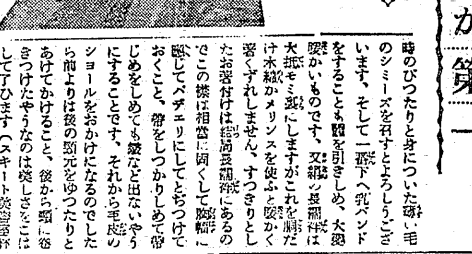 が第一
時のぴつたりと身についた薄い毛
のシミーズを召すとよろしうござ
います、そして一番下へ乳バンド
をすることも腰を引きしめ、大変
暖かいものです、又絹の長襦袢は
大抵モミ裏にしますがこれを胴だ
け木綿かメリンスを使ふと暖かく
著くずれしません、すつきりとし
たお著付けは結局長襦袢にあるの
でこの襟は相当に固くして胸幅に
応じてバチエリにしてとぢつけて
おくこと、帯をしつかりしめて帯
じめをしめても皺など出ないやう
にすることです、それから毛皮の
ショールをおかけになるのでした
ら前よりは後の頸元をゆつたりと
あけてかけること、後から頸に巻
きつけたやうなのは美しさをこは
して了ひます(スキート美容室